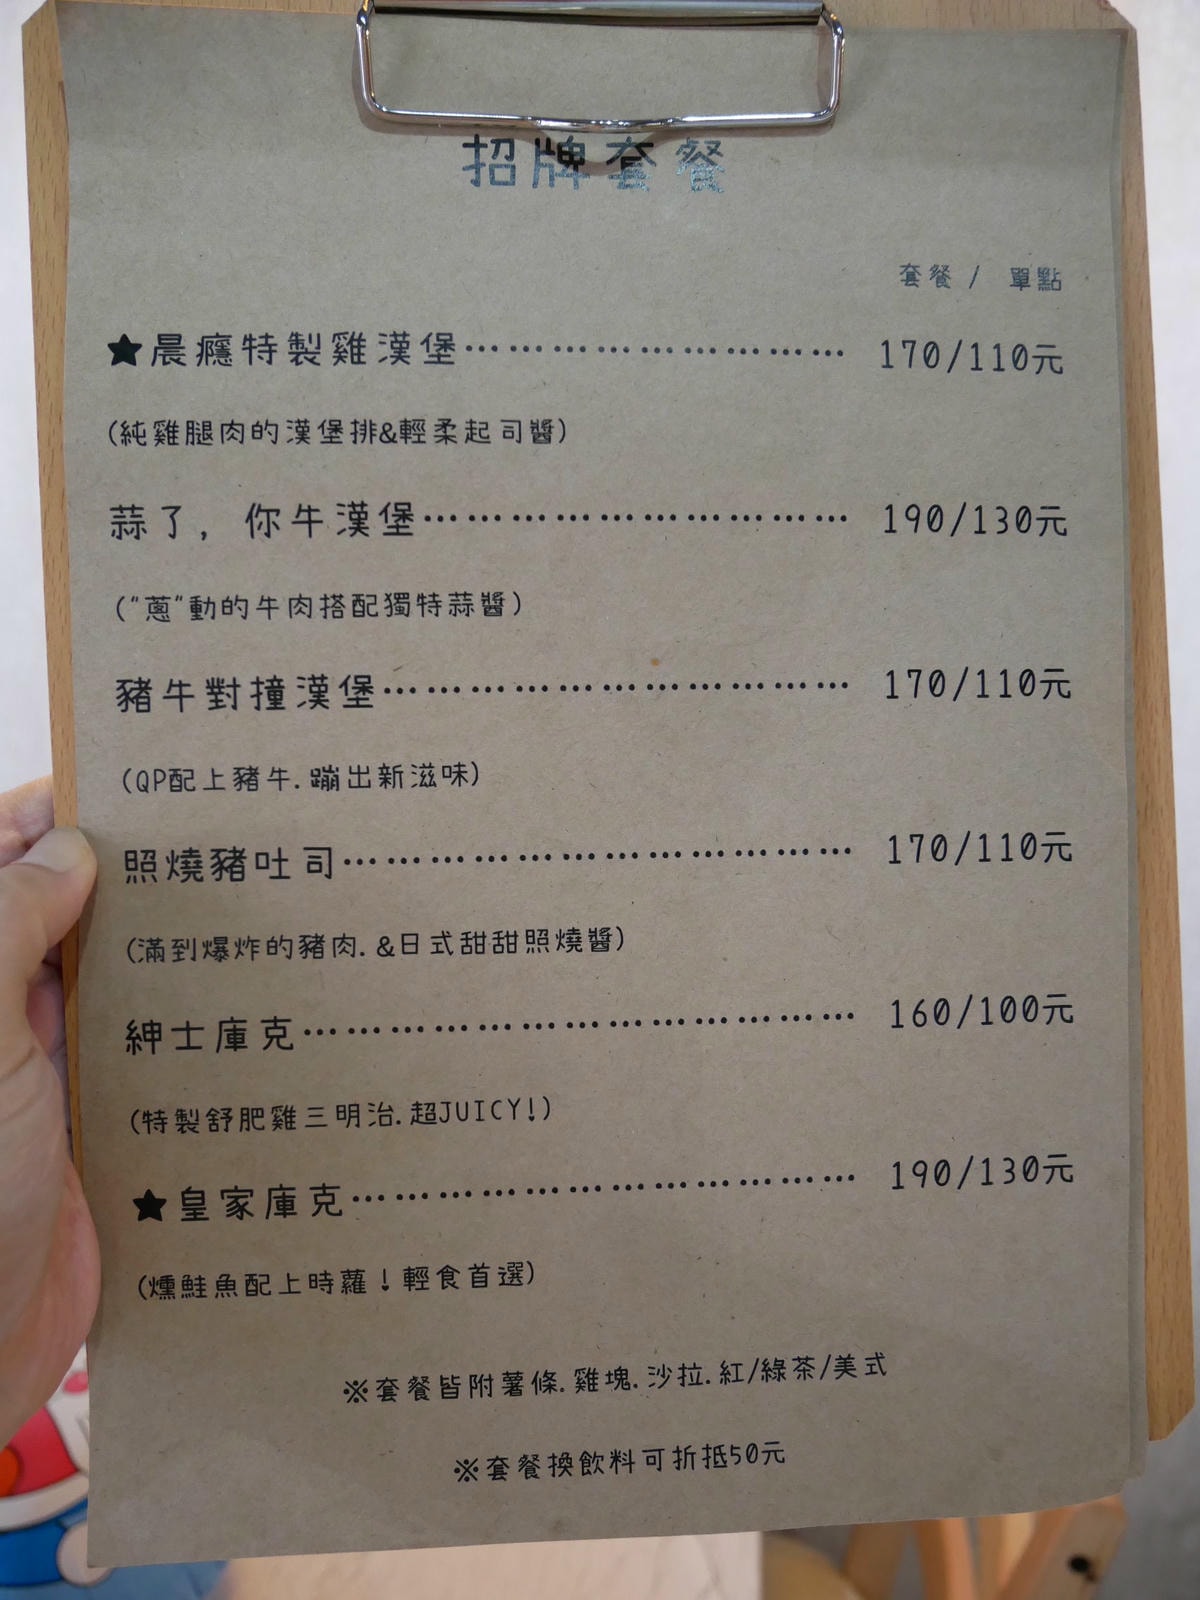 招牌套餐
套餐 / 單點
★晨癮特製雞漢堡⋯⋯⋯⋯⋯⋯⋯⋯⋯ 170/110元
(純雞腿肉的漢堡排&輕柔起司醬)
蒜了, 你牛漢堡⋯⋯⋯⋯⋯⋯⋯⋯⋯⋯ 190/130元
("蔥"動的牛肉搭配獨特蒜醬)
豬牛對撞漢堡⋯⋯⋯⋯⋯⋯⋯⋯⋯⋯⋯ 170/110元
(QP配上豬牛.蹦出新滋味)
照燒豬吐司⋯⋯⋯⋯⋯⋯⋯⋯⋯⋯⋯⋯ 170/110元
(滿到爆炸的豬肉.&日式甜甜照燒醬)
紳士庫克⋯⋯⋯⋯⋯⋯⋯⋯⋯⋯⋯⋯⋯ 160/100元
(特製舒肥雞三明治.超JUICY!)
★皇家庫克⋯⋯⋯⋯⋯⋯⋯⋯⋯⋯⋯⋯ 190/130元
(燻鮭魚配上時蘿!輕食首選)
※套餐皆附薯條.雞塊.沙拉.紅/綠茶/美式
※套餐換飲料可折抵50元